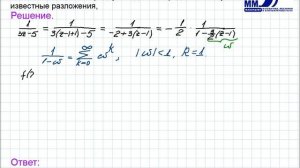 известные разложения.
Решение.
1/(3z-5) = 1/(3(z-1+1)-5) = 1/(-2+3(z-1)) = -1/2 · 1/(1-3/2(z-1))
ω
1/(1-ω) = ∑_{k=0}^{∞} ω^k, |ω|<1, R=1
f(
Ответ:
ММ